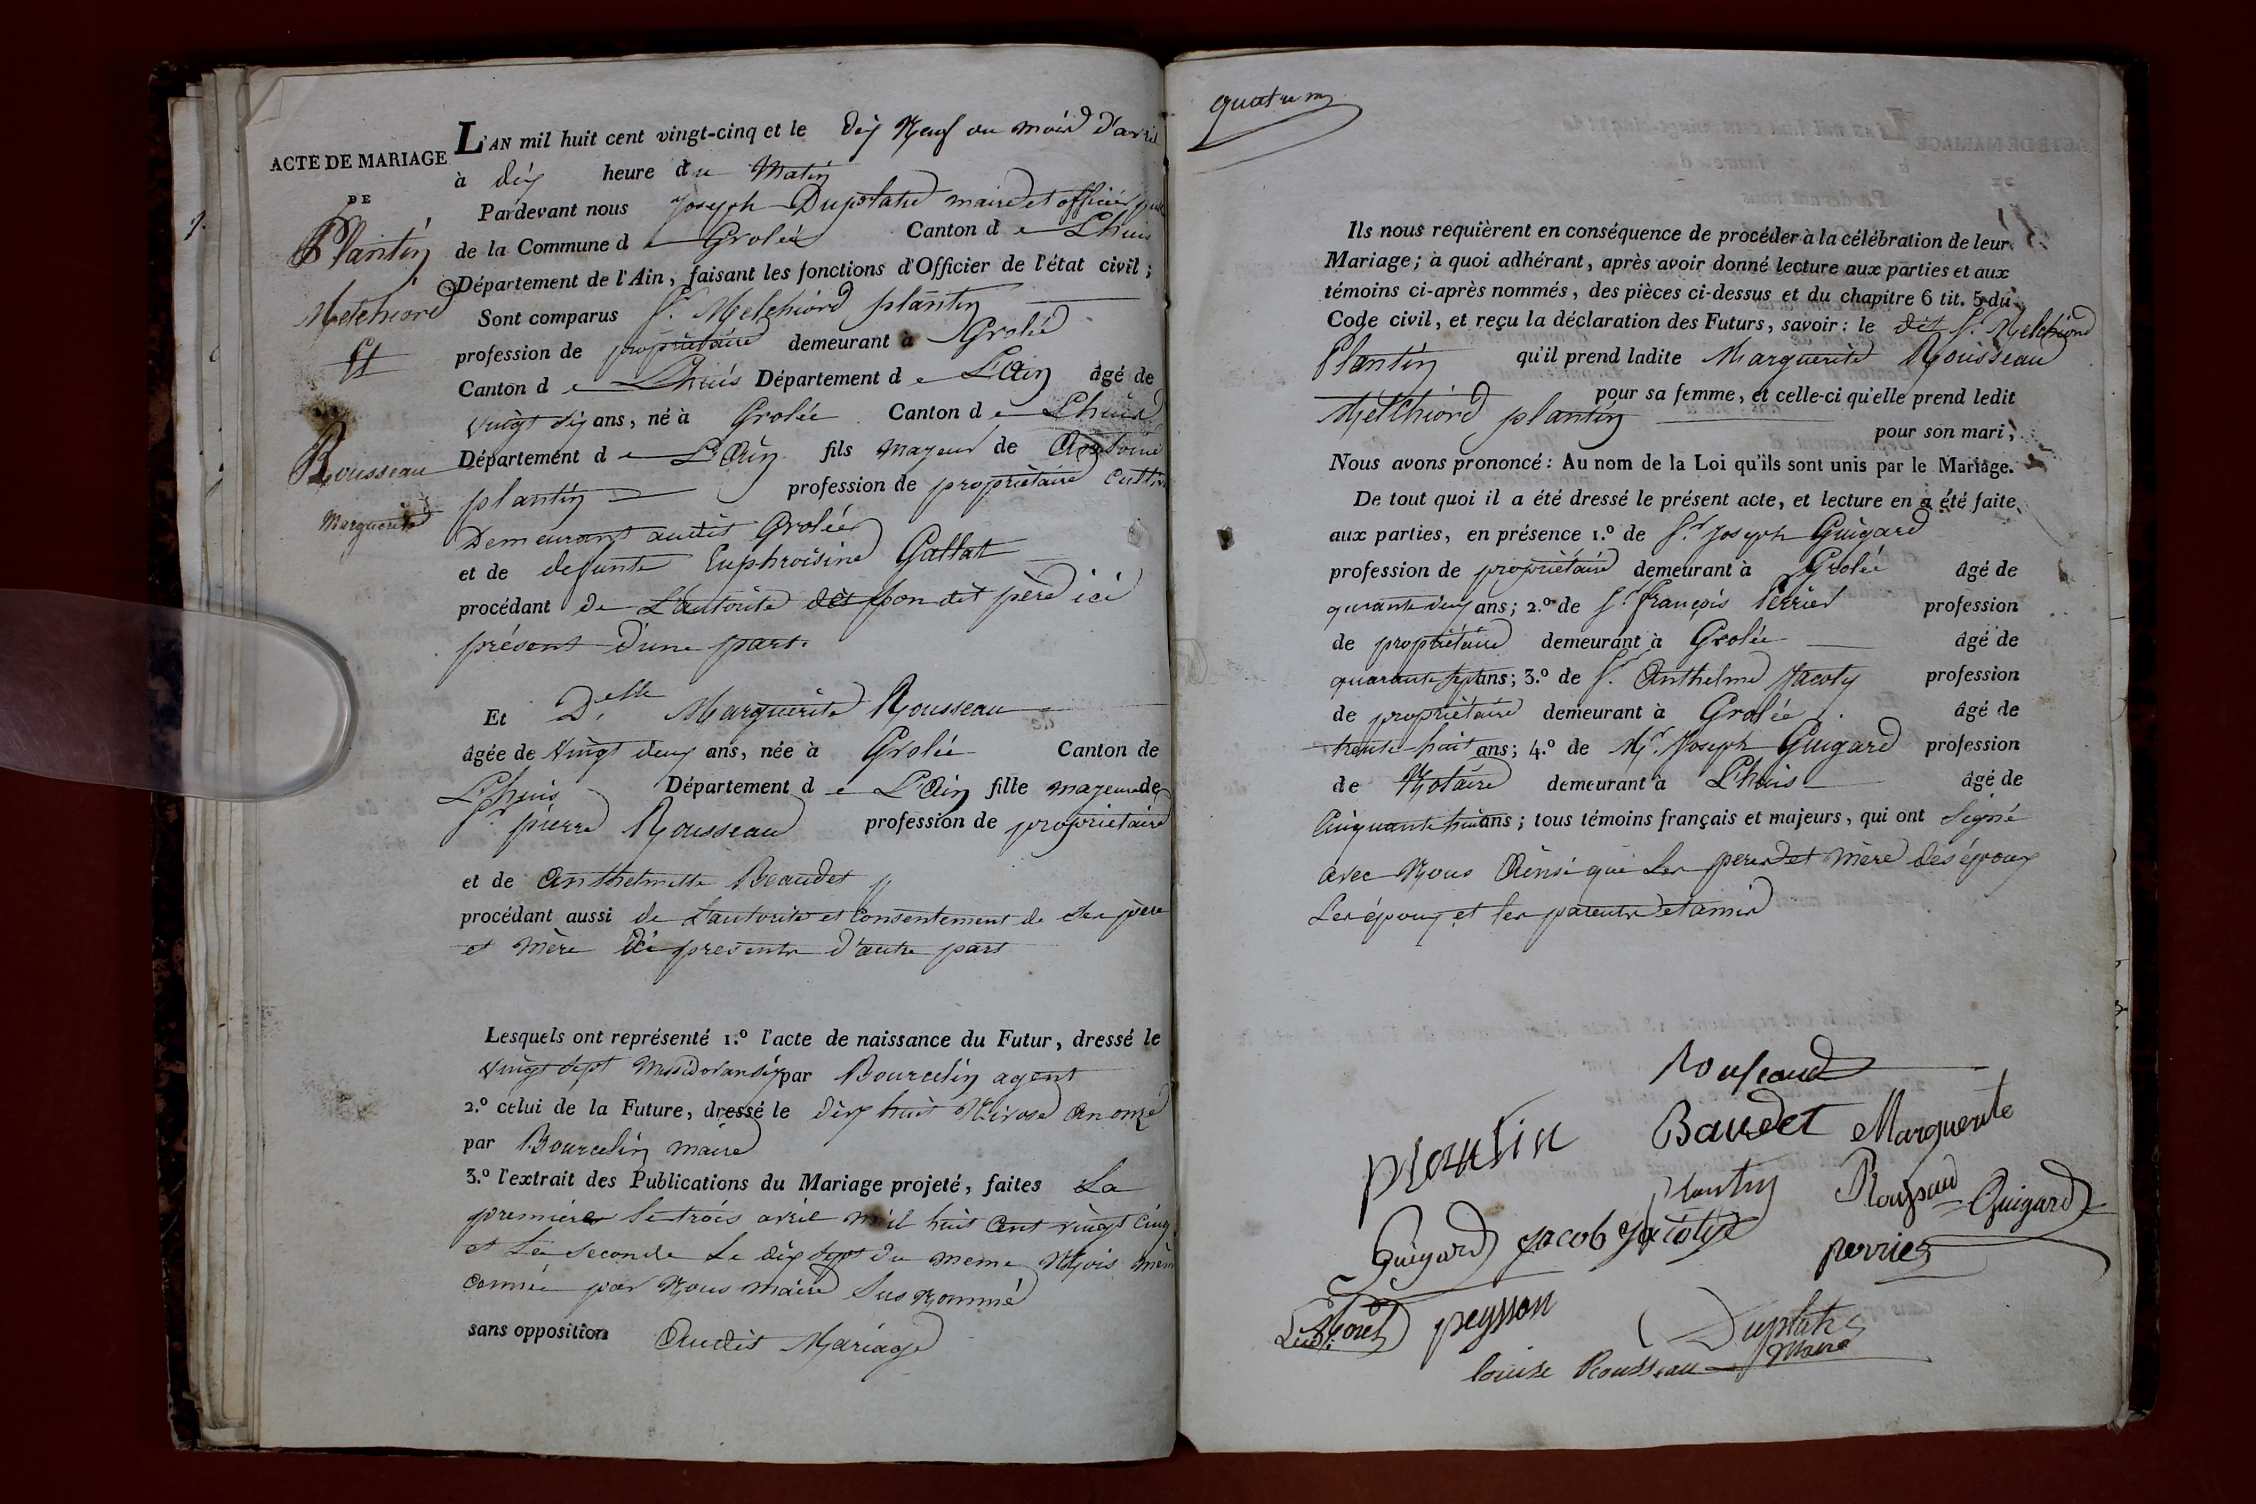 ACTE DE MARIAGE
DE
Plantin
Melchiord
Et
Rousseau
Marguerite
L'AN mil huit cent vingt-cinq et le dix Neuf du mois d'avril
à dix heure du Matin
Pardevant nous Joseph Duplatre maire et officier
de la Commune de Grolée Canton de Lhuis
Département de l'Ain, faisant les fonctions d'Officier de l'état civil;
Sont comparus Sr. Melchiord plantin
profession de propriétaire demeurant à Grolée
Canton de Lhuis Département de L'Ain âgé de
vingt six ans, né à Grolée Canton de Lhuis
Département de L'Ain fils majeur de Antoine
plantin profession de propriétaire
Demeurant audit Grolée
et de defunte Euphroisine Gallat
procédant de L'autorité de son dit père ici
présent d'une part.
Et Delle Marguerite Rousseau
âgée de vingt deux ans, née à Grolée Canton de
Lhuis Département de L'Ain fille majeure de
Sr. pierre Rousseau profession de propriétaire
et de Anthelmette Beaudet
procédant aussi de L'autorité et Consentement de ses père
et mère ici presents d'autre part
Lesquels ont représenté 1.º l'acte de naissance du Futur, dressé le
vingt sept Messidor an six par Bourcelin agent
2.º celui de la Future, dressé le dix huit Nivose an onze
par Bourcelin maire
3.º l'extrait des Publications du Mariage projeté, faites La
premiére le trois avril mil huit Cent vingt Cinq
et La seconde Le dix sept du meme Mois
année par Nous maire Sus Nommé
sans opposition Audit Mariage
Ils nous requièrent en conséquence de procéder à la célébration de leur
Mariage; à quoi adhérant, après avoir donné lecture aux parties et aux
témoins ci-après nommés, des pièces ci-dessus et du chapitre 6 tit. 5 du
Code civil, et reçu la déclaration des Futurs, savoir: le dit Sr. Melchiord
Plantin qu'il prend ladite Marguerite Rousseau
pour sa femme, et celle-ci qu'elle prend ledit
Melchiord plantin pour son mari;
Nous avons prononcé: Au nom de la Loi qu'ils sont unis par le Mariage.
De tout quoi il a été dressé le présent acte, et lecture en a été faite
aux parties, en présence 1.º de Sr. Joseph Guigard
profession de propriétaire demeurant à Grolée âgé de
quarante deux ans; 2.º de Sr. françois Perrier profession
de propriétaire demeurant à Grolée âgé de
quarante sept ans; 3.º de Sr. Anthelme Jacoty profession
de propriétaire demeurant à Grolée âgé de
trente-huit ans; 4.º de Mr. Joseph Guigard profession
de Notaire demeurant à Lhuis âgé de
Cinquante huit ans; tous témoins français et majeurs, qui ont Signé
avec Nous Ainsi que Les pere et mère des époux
Les époux et les parents et amis
Rousseaud
plantin Baudet Marguerite
plantin Rousseau Guigard
Guigard jacob perrier
peysson Duplatre
Maire
louise Rousseau